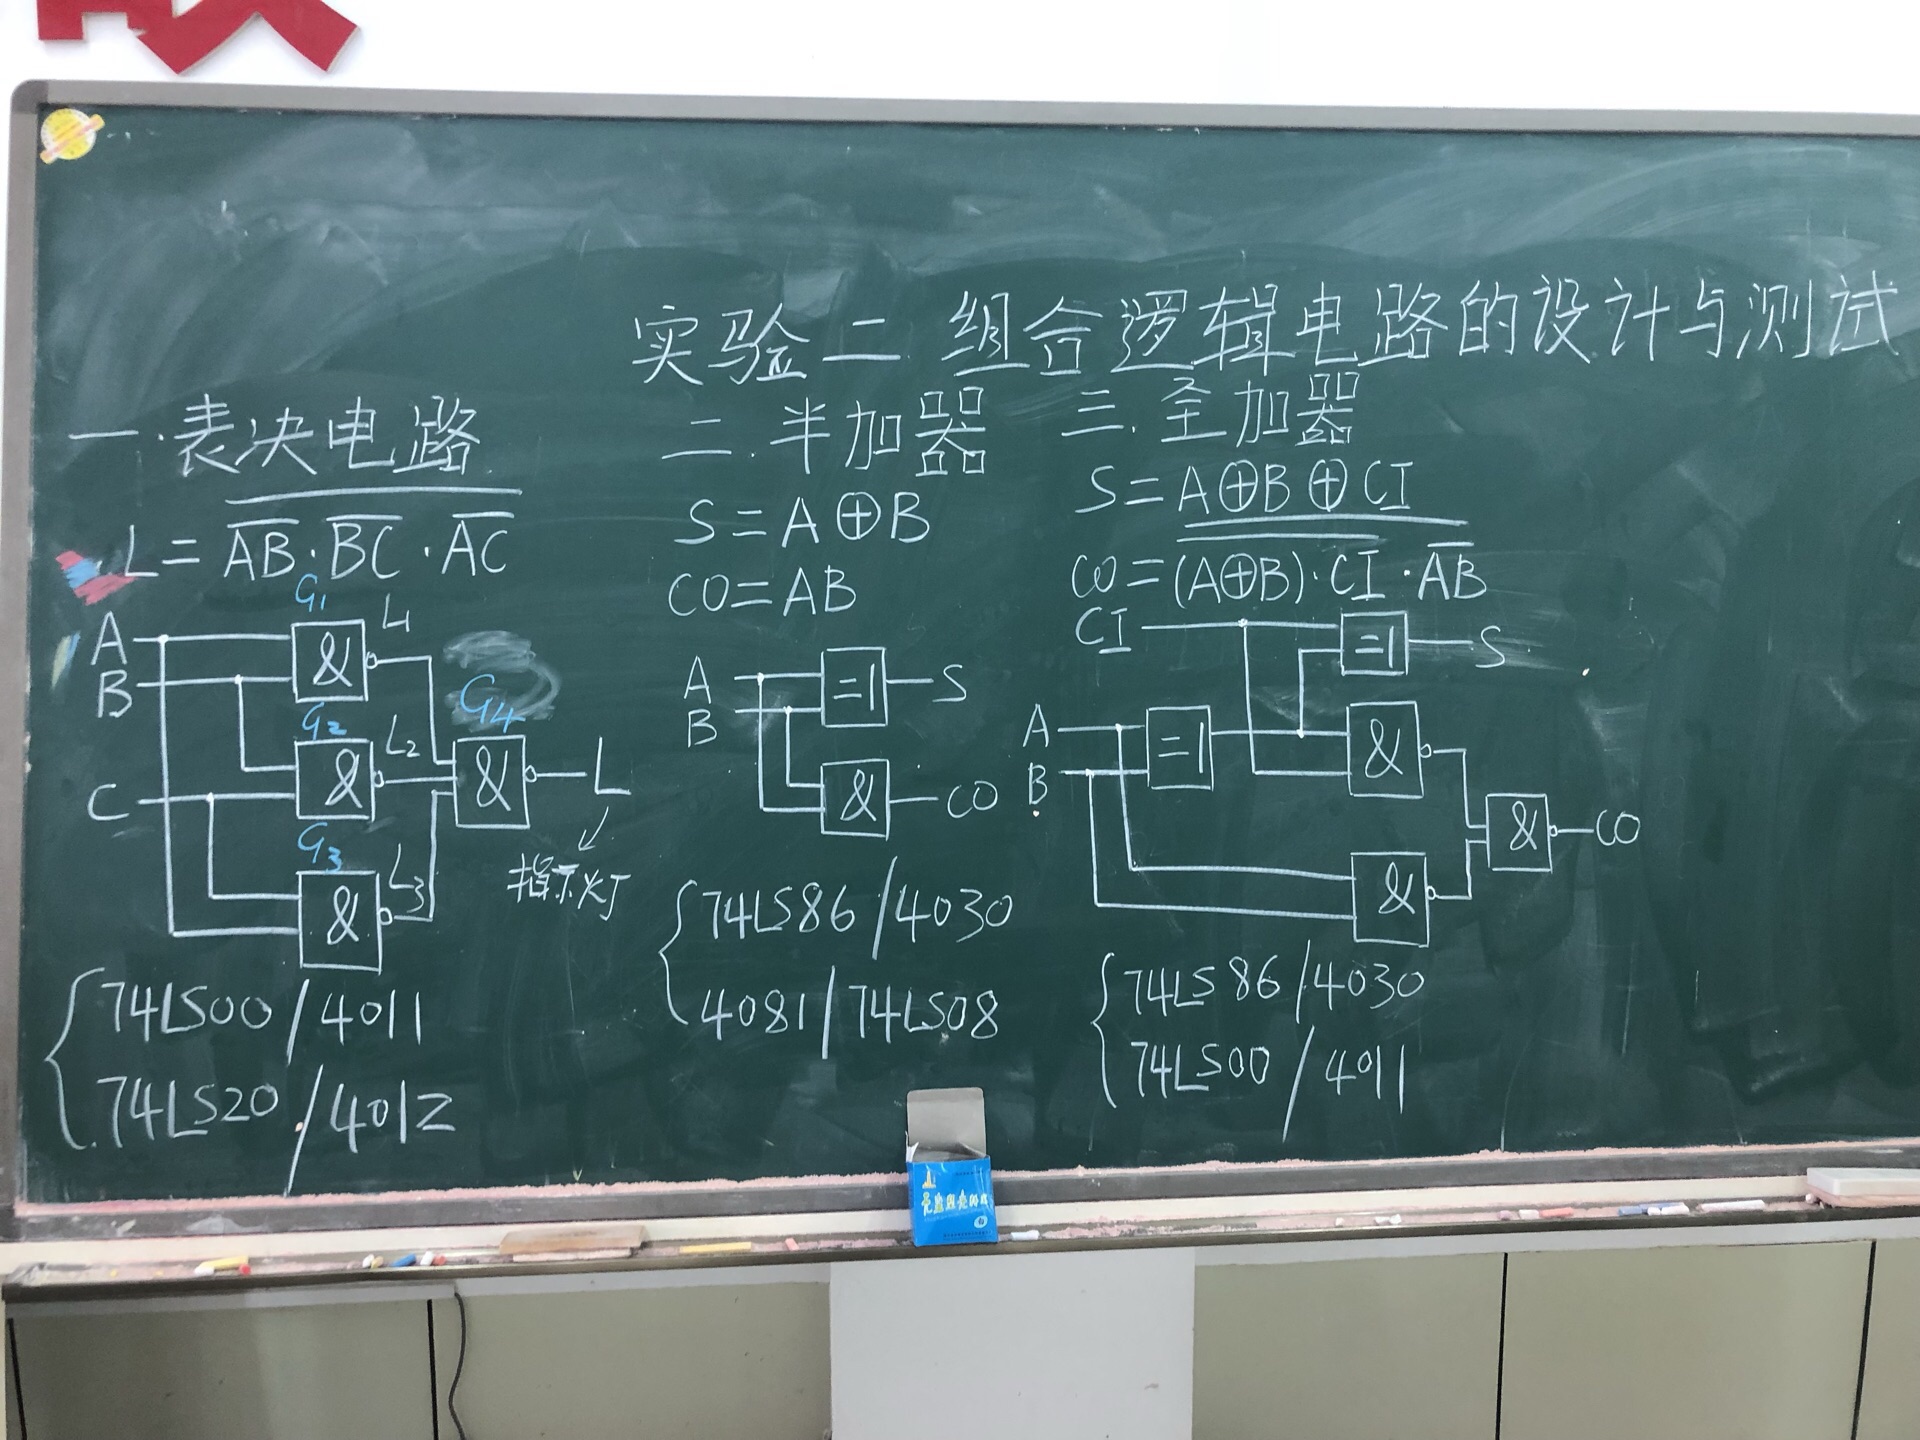 实验二 组合逻辑电路的设计与测试
一.表决电路
L = \overline{\overline{AB}·\overline{BC}·\overline{AC}}
G1
L1
A
B
&
G2
L2
G4
C
&
&
L
G3
L3
&
指示灯
74LS00/4011
74LS20/4012
二.半加器
S=A⊕B
CO=AB
A
B
=1
S
&
CO
74LS86/4030
4081/74LS08
三.全加器
S=A⊕B⊕CI
CO=\overline{\overline{(A⊕B)·CI}·\overline{AB}}
CI
=1
S
A
B
=1
&
&
CO
&
74LS86/4030
74LS00/4011